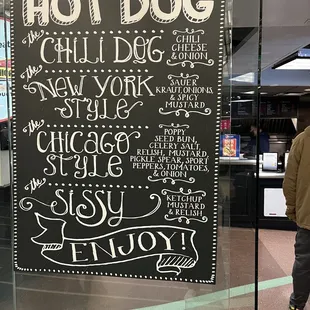 HOT DOG
the CHILI DOG
CHILI
CHEESE
& ONION
the NEW YORK
STYLE
SAUER
KRAUT, ONIONS,
& SPICY
MUSTARD
the CHICAGO
STYLE
POPPY
SEED BUN,
CELERY SALT,
RELISH, MUSTARD,
PICKLE SPEAR, SPORT
PEPPERS, TOMATOES,
& ONION
the SISSY
KETCHUP
MUSTARD
& RELISH
ENJOY!